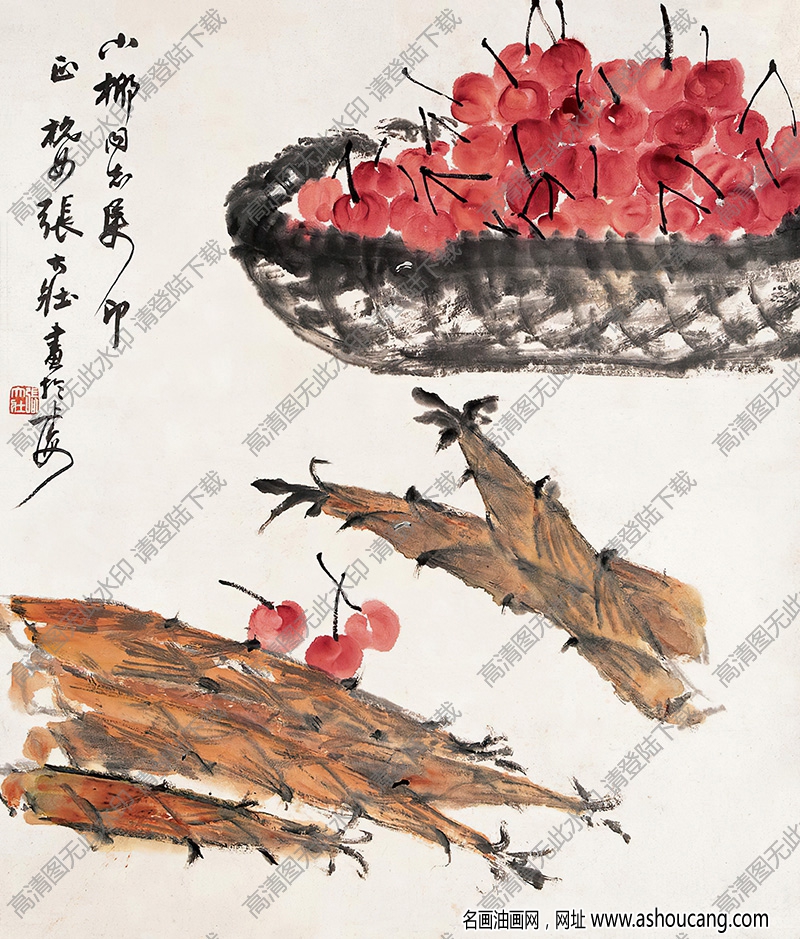 小梛同志集印
正 杭女張大壯畫於上海
張大壯
高清图无此水印 请登陆下载
名画油画网，网址 www.ashoucang.com